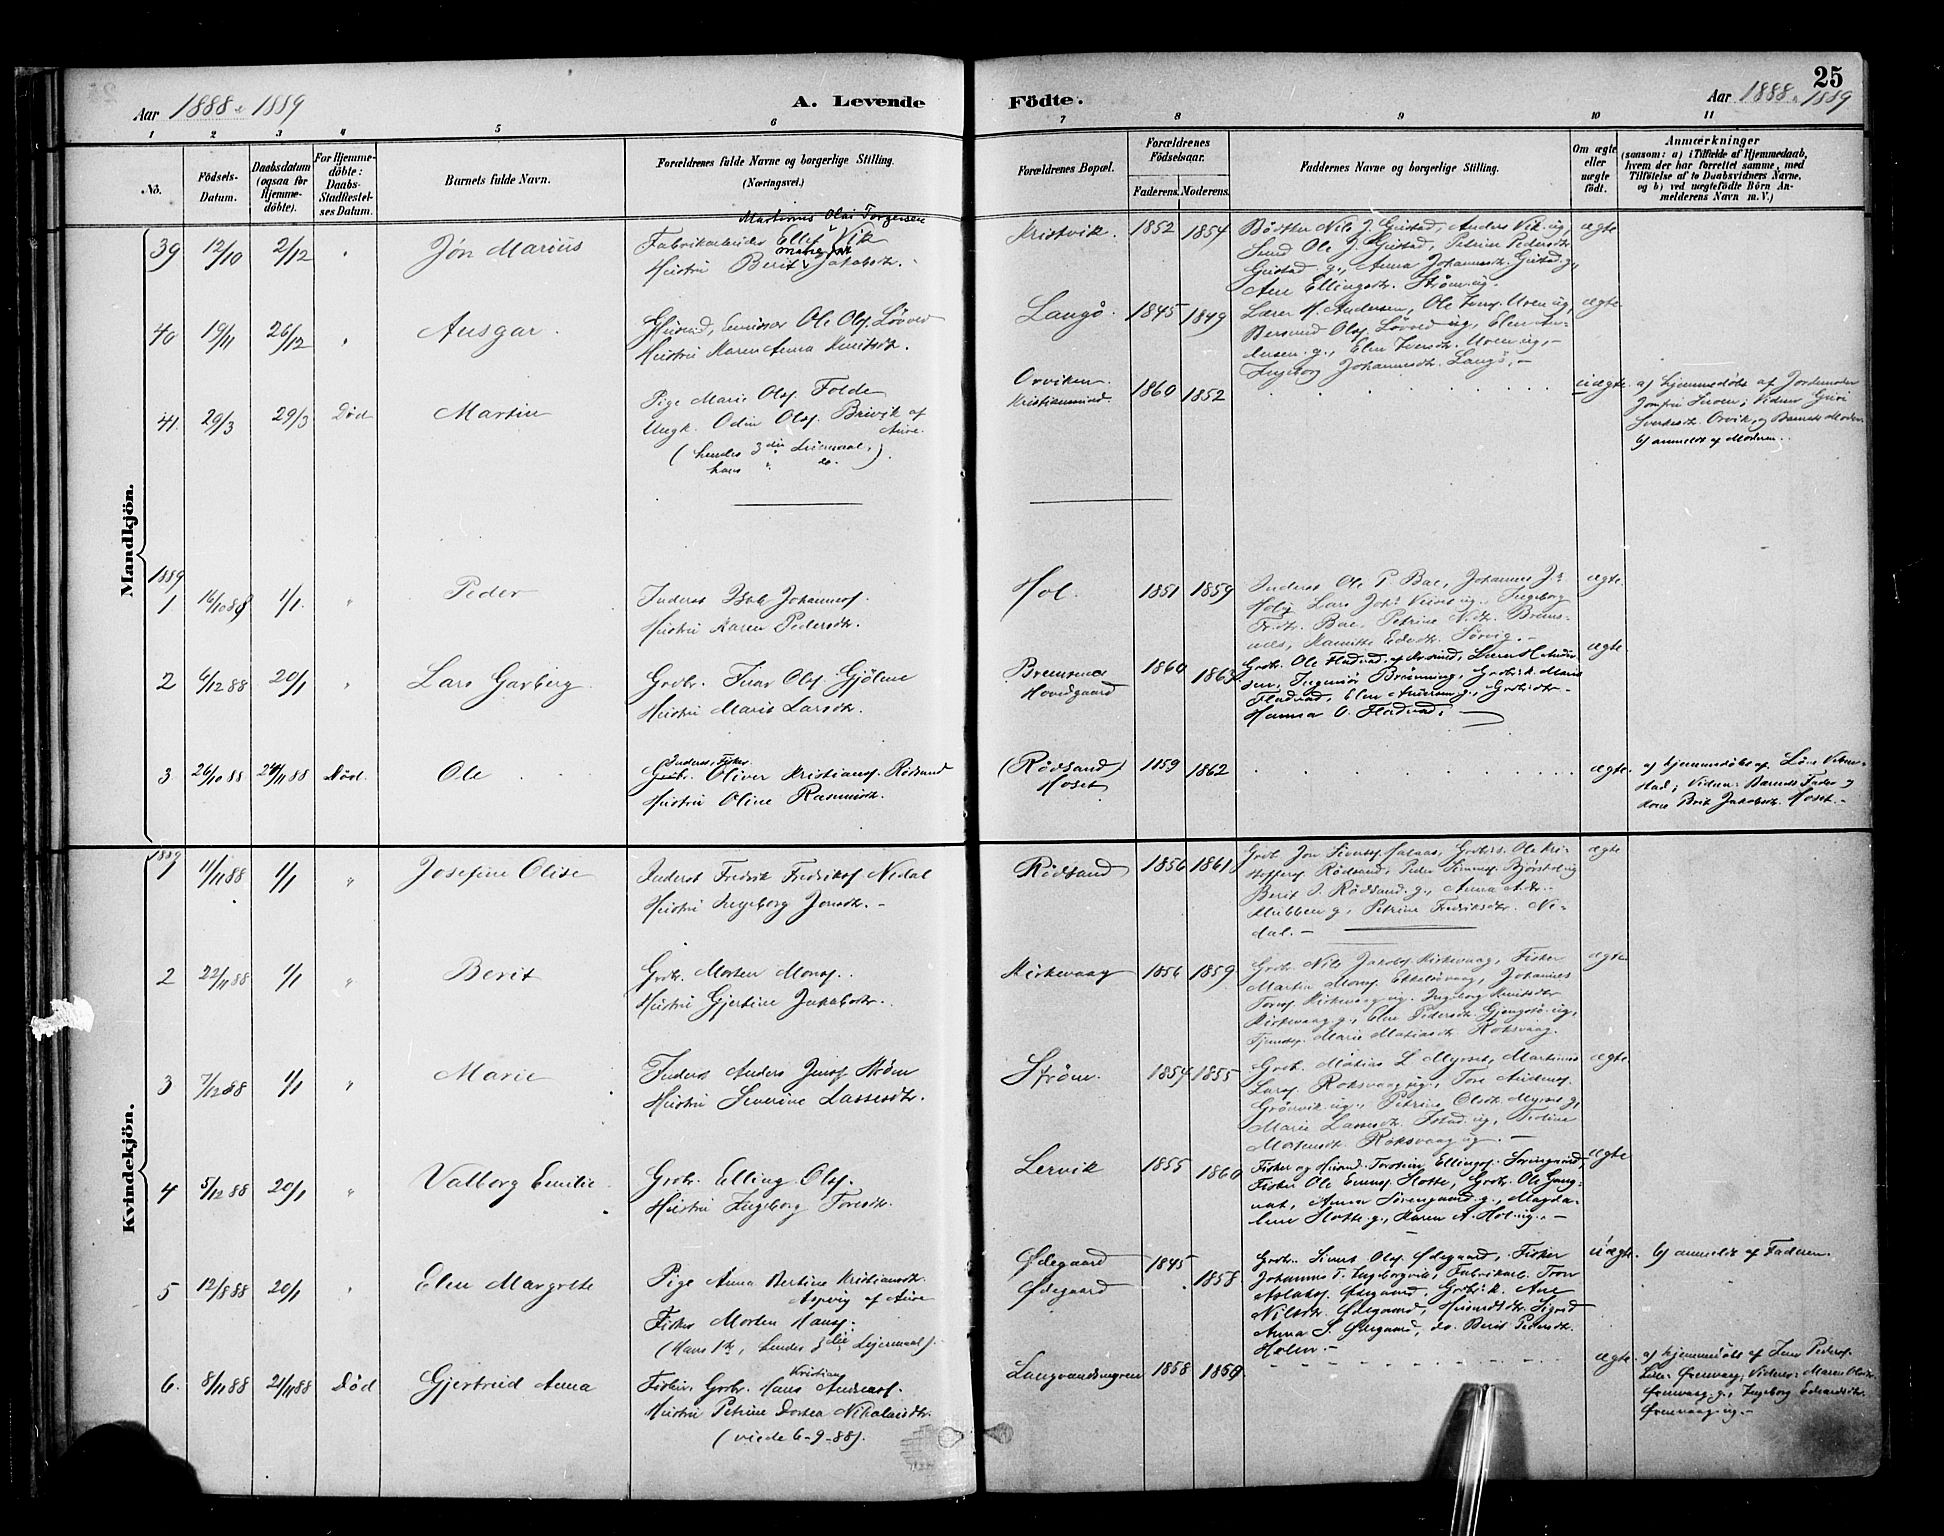 25
Aar 1888 & 1889
A. Levende
Födte.
Aar 1888 & 1889
1 2 3 4 5 6 7 8 9 10 11
No.
Födsels-
Datum.
Daabsdatum
(ogsaa for
Hjemme-
döbte).
For Hjemme-
döbte:
Daabs-
Stadfestel-
ses Datum.
Barnets fulde Navn.
Forældrenes fulde Navne og borgerlige Stilling.
(Næringsvei.)
Forældrenes Bopæl.
Forældrenes
Födselsaar.
Faderens. Moderens.
Faddernes Navne og borgerlige Stilling.
Om ægte
eller
uægte
födt.
Anmærkninger
(saasom: a) i Tilfælde af Hjemmedaab,
hvem der har forrettet samme, med
Tilföielse af to Daabsvidners Navne,
og b) ved uægtefödte Börn An-
melderens Navn m. V.)
Mandkjön.
39 12/10 2/12 " Jön Marius
Martinus Olai Torgersen
Fabrikarbeider Ellef Vik
Hustru Berit Jakobsdtr.
Kristvik. 1852 1854
Bödtker Nils J. Gustad, Anders Vik ug.,
Ole J. Gustad, Petrine Pedersdtr
Gustad g., Anna Johannesdtr. Gustad g.,
Ane Ellingsdtr. Ström ug.
ægte
40 19/11 26/12 " Ansgar.
Husmd, Ole Ols. Lövved
Hustru Karen Anna Knutsdtr.
Langö. 1845 1849
Lærer M. Andersen, Ole Ivers. Uren ug,
Bersvend Ols. Lövved ug., Elen An-
dersen. g., Elen Iversdtr. Uren ug,-
Ingeborg Johannesdtr. Langö, -
ægte
41. 29/3 29/3 Död Martin
Pige Marie Ols. Folde
Ungk. Odin Ols. Brivik af
Aure
(hendes 3die Leiermaal,
hans " do.)
Orviken.
Kristiansund.
1860 1852
uægte.
a) hjemmedöbt af Jordemoder
Jomfru Iversen; Vidner Guri
Sverkesdtr. Orvik, og Barnets Moder
b) anmeldt af Moderen.
1889
1 16/10 88 1/1. " Peder
Inderst Johannes.
Hustru Karen Pedersdtr.
Hol. 1851 1859
Inderst Ole P. Bae, Johannes J.
Ingeborg
Bae, Petrine N.dtr. Brems-
nes, Edvdtr. Sörvig. -
ægte
2 6/12 88 20/1 " Lars Garberg
Grdbr. Ivar Ols. Gjölme
Hustru Marie Larsdtr.
Bremsnes
Hovedgaard
1860 1863
Grdbr. Ole Fladvad af Lærer H Ander-
sen, Ingeniör Brünning, Grdbr.k. Marie
Fladvad, Elen Andersen g., Grdbrdtr.
Hanna O. Fladvad.
ægte
3 26/10 88 24/11 88 Död. Ole
Inderst, Fisker
Grdbr. Oliver Kristians. Rödsand
Hustru Oline Rasmusdtr.
(Rödsand)
Hoset
1859 1862
ægte.
a) hjemmedöbt af Löve
stad; Vidner: Barnets Fader og
Kone Brit Jakobsdtr. Hoset. -
Kvindekjön.
1889
1 11/11 88 1/1 " Josefine Olise
Inderst Fredrik Fredriks. Nedal
Hustru Ingeborg Jonsdtr. -
Rödsand 1856 1861
Grdb. Jon Sivers. Grdbrs. Ole Kri-
stoffers. Rödsand, Peder
Berit O. Rödsand g., Anna
Stubben g., Petrine Fredriksdtr. Ne-
dal. -
ægte
2 22/11 88 1/1 " Berit
Grdbr. Morten Mons.
Hustru Gjertine Jakobsdtr.
Kirkevaag 1856 1859
Grdbr. Nils Jakobs. Kirkevaag, Fisker
Martin Mons. Johannes
Tores. Kirkevaag ug. Ingeborg Knutsdtr
Kirkevaag g., Elen Pedersdtr. ug,
Marie Matiasdtr. Roksvaag.
ægte
3 7/12 88 1/1 " Marie
Inderst Anders Jens. Ström
Hustru Severine Lassesdtr.
Ström. 1854 1855
Grdbr. Matias L Myrset, Martinus
Lars. Roksvaag ug., Tore Anders.
Grönvik ug., Petrine Olsdtr. Myrset g,
Marie Lassesdtr. ug.,
Mortensdtr. Roksvaag ug. -
ægte
4 5/12 88 20/1 " Valborg Emilie
Grdbr. Elling Ols.
Hustru Ingeborg Toresdtr.
Lervik 1855 1860
Fisker og Husmd. Torstein Ellings. Sörengaard,
Fisker Ole Hotte, Grdbr. Ole
Anna Sörengaard g., Magda-
lene Hotte g., Karen A. Hol ug., -
ægte
5 12/8 88 20/1 " Elen Margrethe
Pige Anna Bertine Kristiansdtr.
Aspvig af Aure
Fisker Morten Hans.
(Hans 1ste, hendes 3die Leiermaal).
Ødegaard
Ødegaard
1845
1858
Grdbr. Sivert Ols. Ødegaard, Fisker
Johannes T. Ingeborgvik, Fabrikarb. Tron
Aslaks. Ødegaard, Grdbr.k. Ane
Nilsdtr. Ødegaard, Husmdsdtr. Sigrid
Anna S. Ødegaard, do. Berit Pedersdtr.
Holen -
uægte. b) anmeldt af Faderen.
6. 8/11 88 21/11 88 Död Gjertrud Anna
Kristian
Fisker, Grdbr. Hans Andreas.
Hustru Petrine Dortea Nikolaisdtr.
(viede 6-9-88).
Langvandsmyren 1858 1860
ægte.
a) hjemmedöbt af Jens Peders.
Lille Ørenvaag; Vidner: Maren Olsdtr
Ørenvaag g., Ingeborg Edvardsdtr.
Ørenvaag ug. -